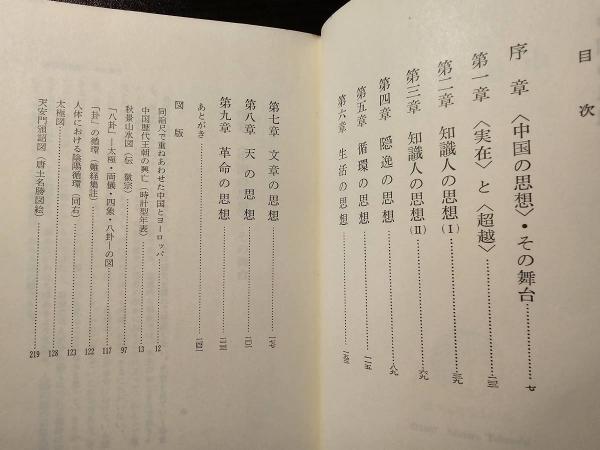 目次
序章 〈中国の思想〉・その舞台……七
第一章 〈実在〉と〈超越〉……二三
第二章 知識人の思想(I)……三九
第三章 知識人の思想(II)……六九
第四章 隠逸の思想……八九
第五章 循環の思想……一一五
第六章 生活の思想……
第七章 文章の思想……
第八章 天の思想……
第九章 革命の思想……
あとがき……二四一
図版
同縮尺で重ねあわせた中国とヨーロッパ……12
中国歴代王朝の興亡(時計型年表)……13
秋景山水図(伝 徽宗)……97
「八卦」―太極・両儀・四象・八卦―の図……117
「卦」の循環(難経集註)……122
人体における陰陽循環(同右)……123
太極図……128
天安門頒詔図(唐土名勝図絵)……219